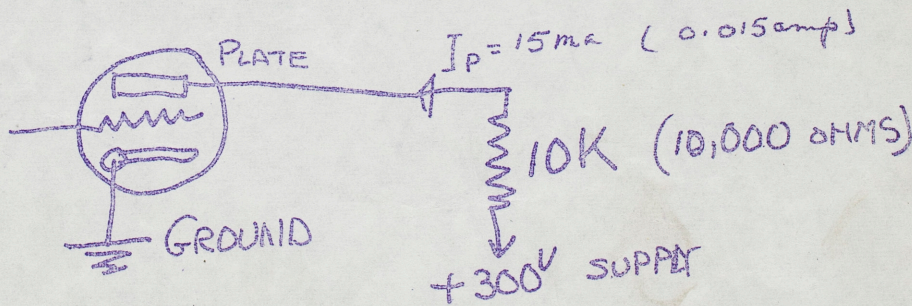 PLATE
Ip = 15 ma ( 0.015 amp)
10K (10,000 OHMS)
GROUND
+300V SUPPLY